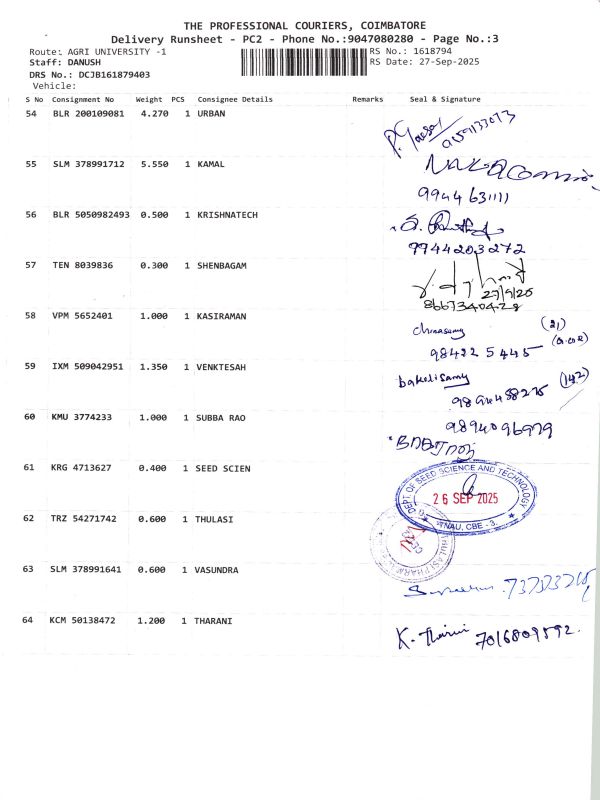 THE PROFESSIONAL COURIERS, COIMBATORE
Delivery Runsheet - PC2 - Phone No.:9047080280 - Page No.:3
Route: AGRI UNIVERSITY -1 RS No.: 1618794
Staff: DANUSH RS Date: 27-Sep-2025
DRS No.: DCJB161879403
Vehicle:
S No Consignment No Weight PCS Consignee Details Remarks Seal & Signature
54 BLR 200109081 4.270 1 URBAN
55 SLM 378991712 5.550 1 KAMAL
9944631111
56 BLR 5050982493 0.500 1 KRISHNATECH
9944203272
57 TEN 8039836 0.300 1 SHENBAGAM
27/9/25
58 VPM 5652401 1.000 1 KASIRAMAN
(21)
98422 5 445
59 IXM 509042951 1.350 1 VENKTESAH
(142)
60 KMU 3774233 1.000 1 SUBBA RAO
9894096979
61 KRG 4713627 0.400 1 SEED SCIEN
DEPT. OF SEED SCIENCE AND TECHNOLOGY
26 SEP 2025
TNAU, CBE - 3.
62 TRZ 54271742 0.600 1 THULASI
THULASI PHARM
63 SLM 378991641 0.600 1 VASUNDRA
64 KCM 50138472 1.200 1 THARANI
K. Tharini 7016809592.